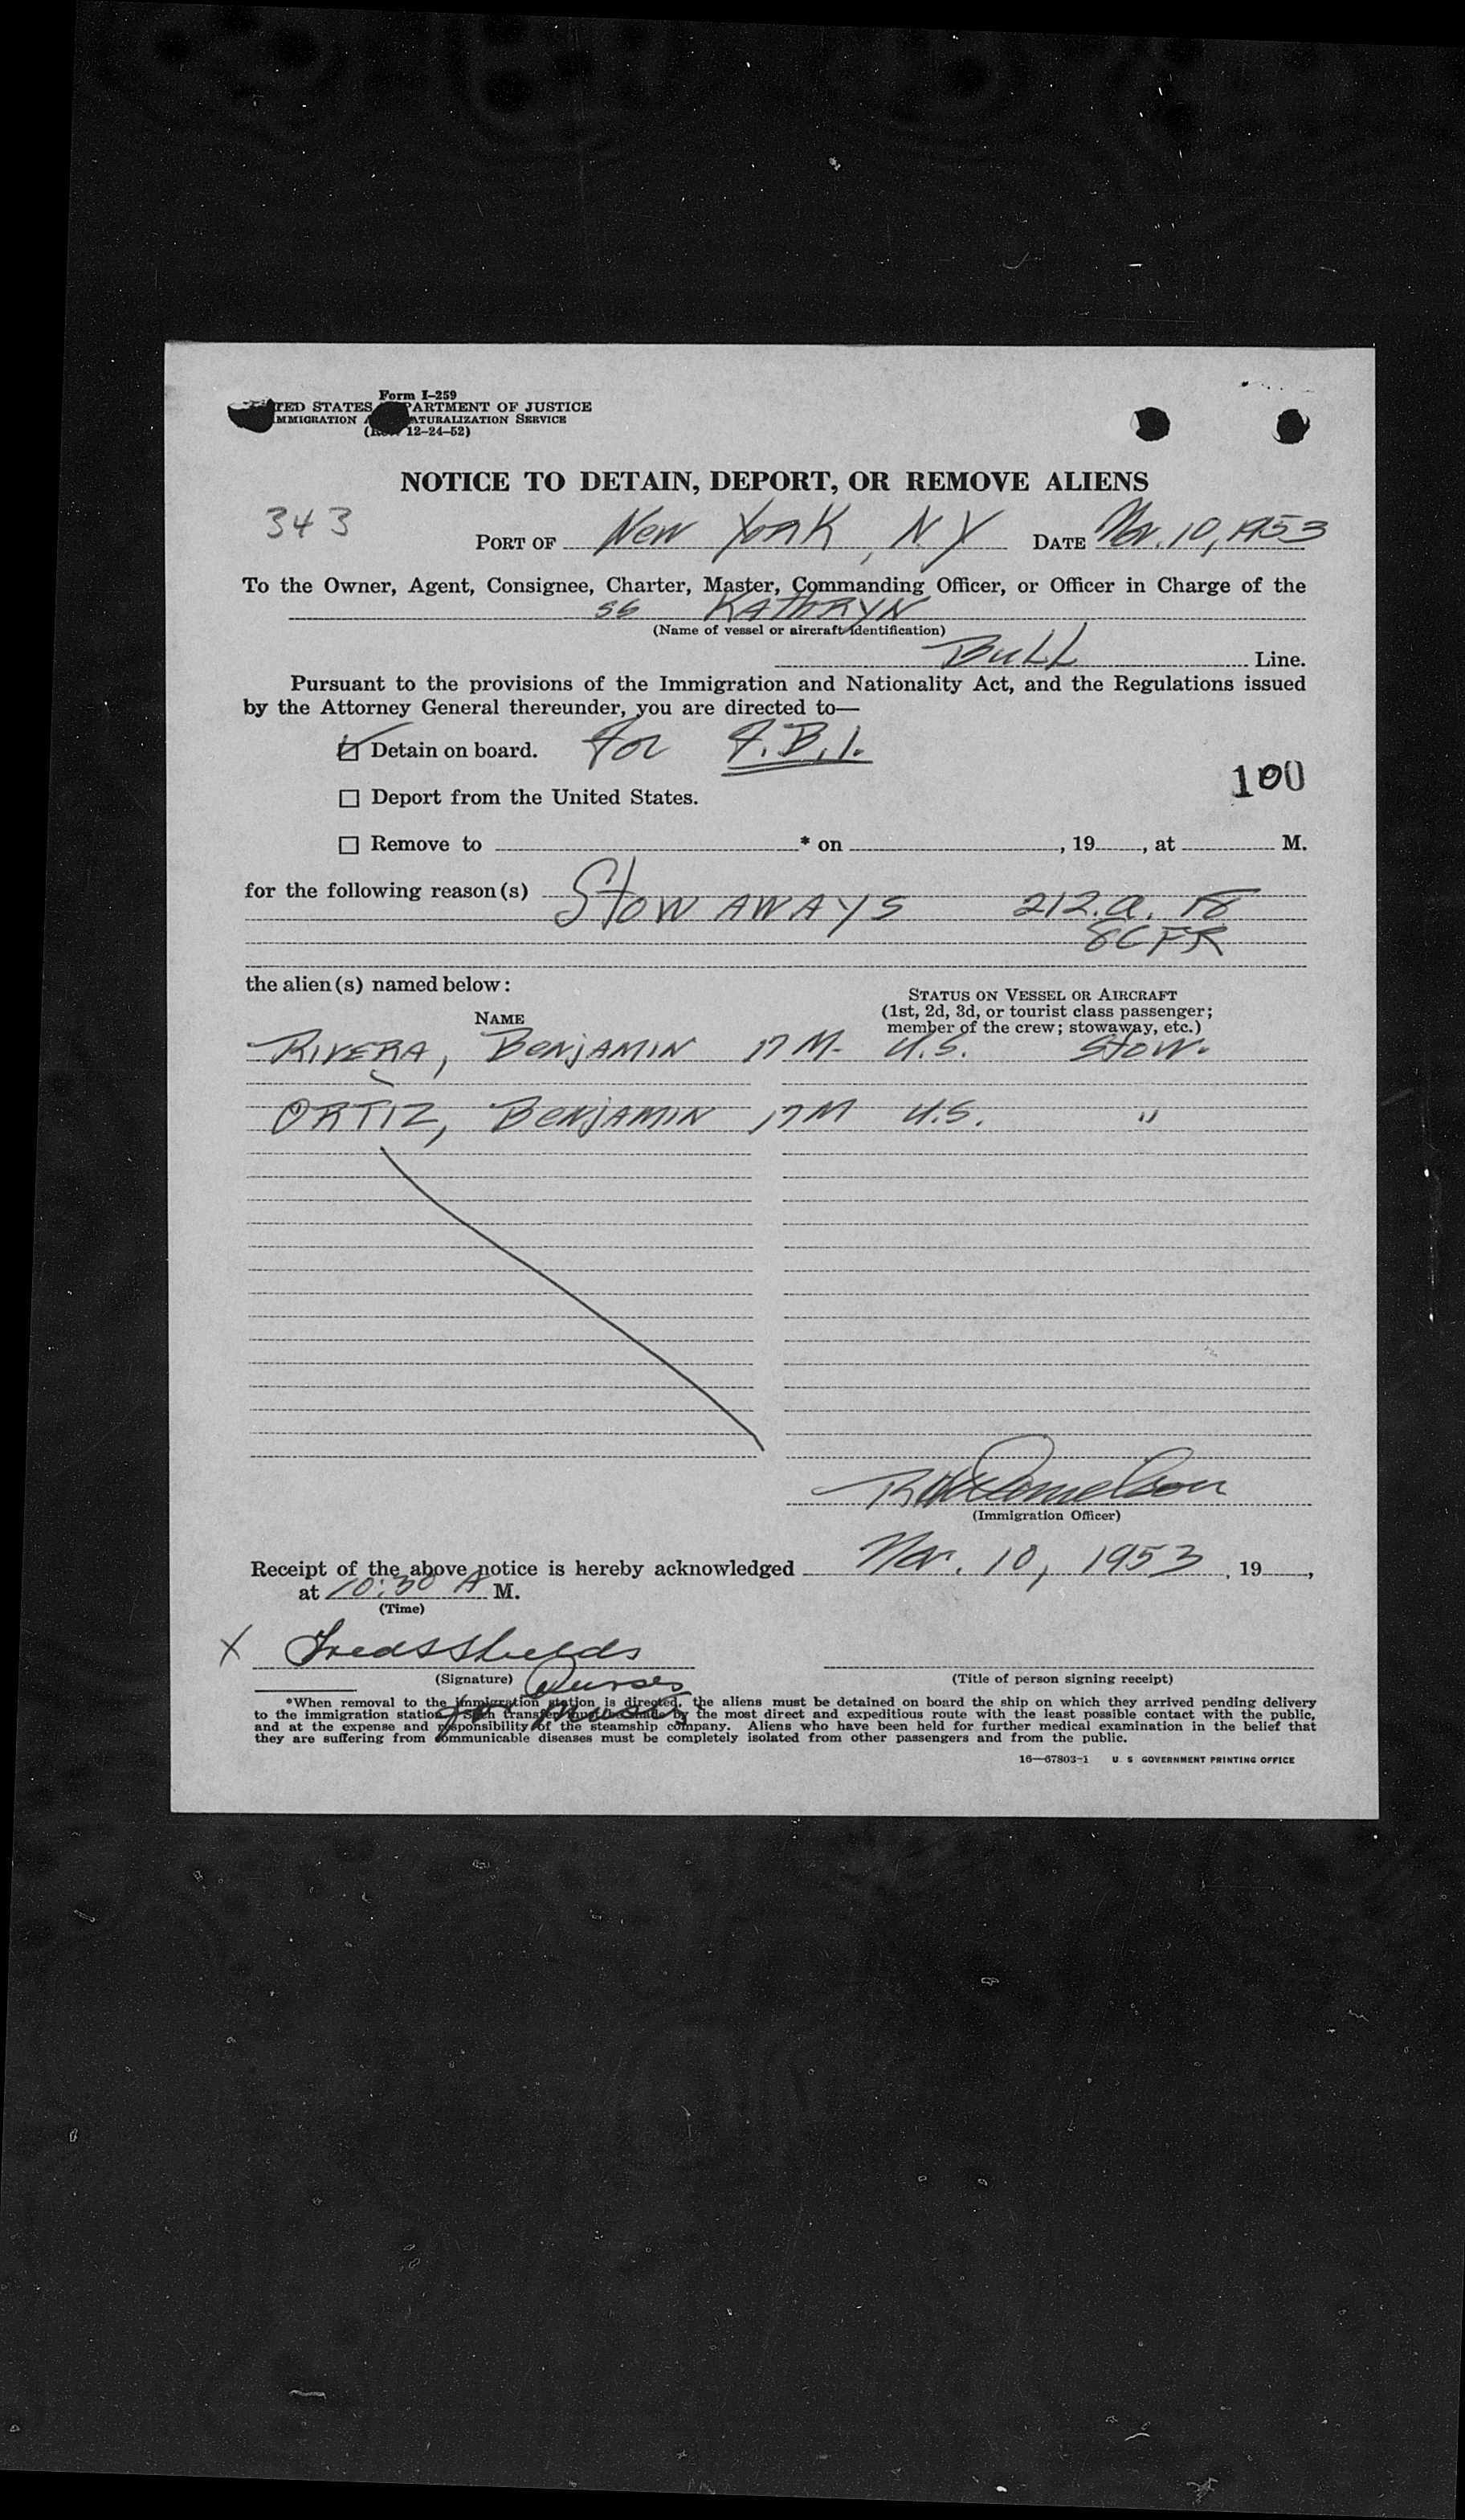 Form I-259
TED STATES PARTMENT OF JUSTICE
MMIGRATION ATURALIZATION SERVICE
12-24-52)
NOTICE TO DETAIN, DEPORT, OR REMOVE ALIENS
343
PORT OF New York, N.Y DATE Nov. 10, 1953
To the Owner, Agent, Consignee, Charter, Master, Commanding Officer, or Officer in Charge of the
SS KATHRYN
(Name of vessel or aircraft identification)
Bull Line.
Pursuant to the provisions of the Immigration and Nationality Act, and the Regulations issued
by the Attorney General thereunder, you are directed to—
Detain on board. for F.B.I.
100
Deport from the United States.
Remove to * on , 19 , at M.
for the following reason(s) Stowaways 212.a. 18
8CFR
the alien(s) named below:
STATUS ON VESSEL OR AIRCRAFT
(1st, 2d, 3d, or tourist class passenger;
member of the crew; stowaway, etc.)
NAME
RIVERA, BENJAMIN 17 M- U.S. Stow.
ORTIZ, BENJAMIN 17M U.S. "
(Immigration Officer)
Receipt of the above notice is hereby acknowledged Nov. 10, 1953, 19 ,
at 10:30 A M.
(Time)
X Fred S Shields
(Signature) Purser
(Title of person signing receipt)
*When removal to the immigration station is directed, the aliens must be detained on board the ship on which they arrived pending delivery
to the immigration station. Such transfer must be made by the most direct and expeditious route with the least possible contact with the public,
and at the expense and responsibility of the steamship company. Aliens who have been held for further medical examination in the belief that
they are suffering from communicable diseases must be completely isolated from other passengers and from the public.
16—67803-1 U S GOVERNMENT PRINTING OFFICE